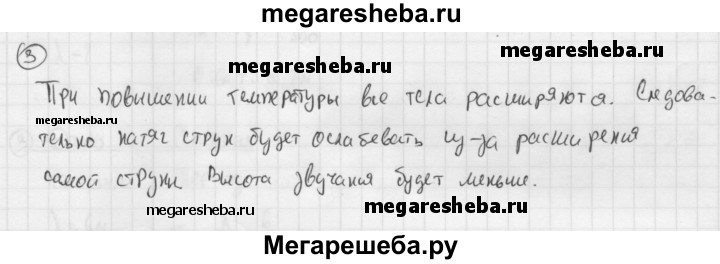 megaresheba.ru
3
megaresheba.ru
При повышении температуры все тела расширяются. Следова-
тельно натяг струн будет ослабевать из-за расширения
самой струны. Высота звучания будет меньше.
megaresheba.ru
megaresheba.ru
Мегарешеба.ру